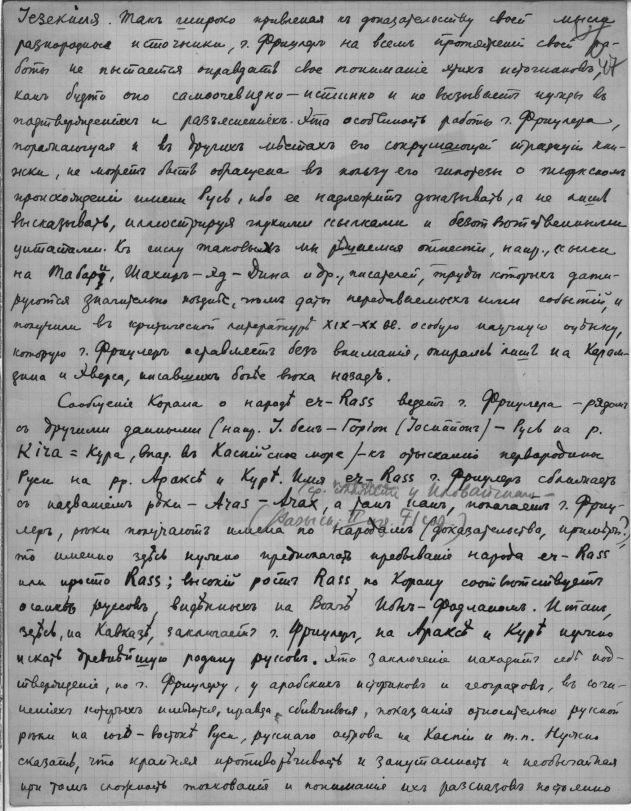 Іезекіиля. Такъ широко привлекая къ доказательству своей мысли
разнородные источники, г. Фрицлеръ на всемъ протяженіи своей ра-
боты не пытается оправдать свое пониманіе этихъ источниковъ,
какъ будто оно самоочевидно-истинно и не вызываетъ нужды въ
подтвержденіяхъ и разъясненіяхъ. Эта особенность работы г. Фрицлера,
поражающая и въ другихъ мѣстахъ его сокрушающей традиціи кни-
жки, не можетъ быть обращена въ пользу его гипотезы о
происхожденіи имени Русь, ибо ее надлежитъ доказывать, а не лишь
высказывать, иллюстрируя глухими ссылками и безотвѣтственными
цитатами. Въ силу таковыхъ мы рѣшаемся отмести, напр., ссылки
на Табари, Шахиръ-эд-Дина и др., писателей, труды которыхъ дати-
руются значительно позднѣе, чѣмъ даты передаваемыхъ ими событій, и
получили въ критической литературѣ XIX-XX вв. особую научную оцѣнку,
которую г. Фрицлеръ оставляетъ безъ вниманія, опираясь лишь на Карам-
зина и Эверса, писавшихъ болѣе вѣка назадъ.
Сообщеніе Корана о народѣ еч-Rass ведетъ г. Фрицлера - рядомъ
съ другими данными (напр. І. бенъ-Горіонъ (Іосиппонъ) - Русь на р.
Kira = Кура, впад. въ Каспійское море) - къ отысканію первородины
Руси на рр. Араксѣ и Курѣ. Имя еч-Rass г. Фрицлеръ сближаетъ
ср. у Иловайскаго -
съ названіемъ рѣки - Aras - Arax, а такъ какъ, полагаетъ г. Фриц-
(Разыск. II
леръ, рѣки получаютъ имена по народамъ (доказательства, примѣръ?)
то именно здѣсь нужно предполагать пребываніе народа еч-Rass
или просто Rass; высокій ростъ Rass по Корану соотвѣтствуетъ
руссовъ, видѣнныхъ на Волгѣ Ибнъ-Фадланомъ. Итакъ,
здѣсь, на Кавказѣ, заключаетъ г. Фрицлеръ, на Араксѣ и Курѣ нужно
искать древнѣйшую родину руссовъ. Это заключеніе находитъ себѣ под-
твержденіе, по г. Фрицлеру, у арабскихъ историковъ и географовъ, въ сочи-
неніяхъ которыхъ имѣются, правда, сбивчивыя, показанія относительно русской
рѣки на юго-востокѣ Руси, русскаго острова на Каспіи и т.п. Нужно
сказать, что крайняя противорѣчивость и запутанность и необычайная
при томъ сложность толкованія и пониманія ихъ разсказовъ постоянно